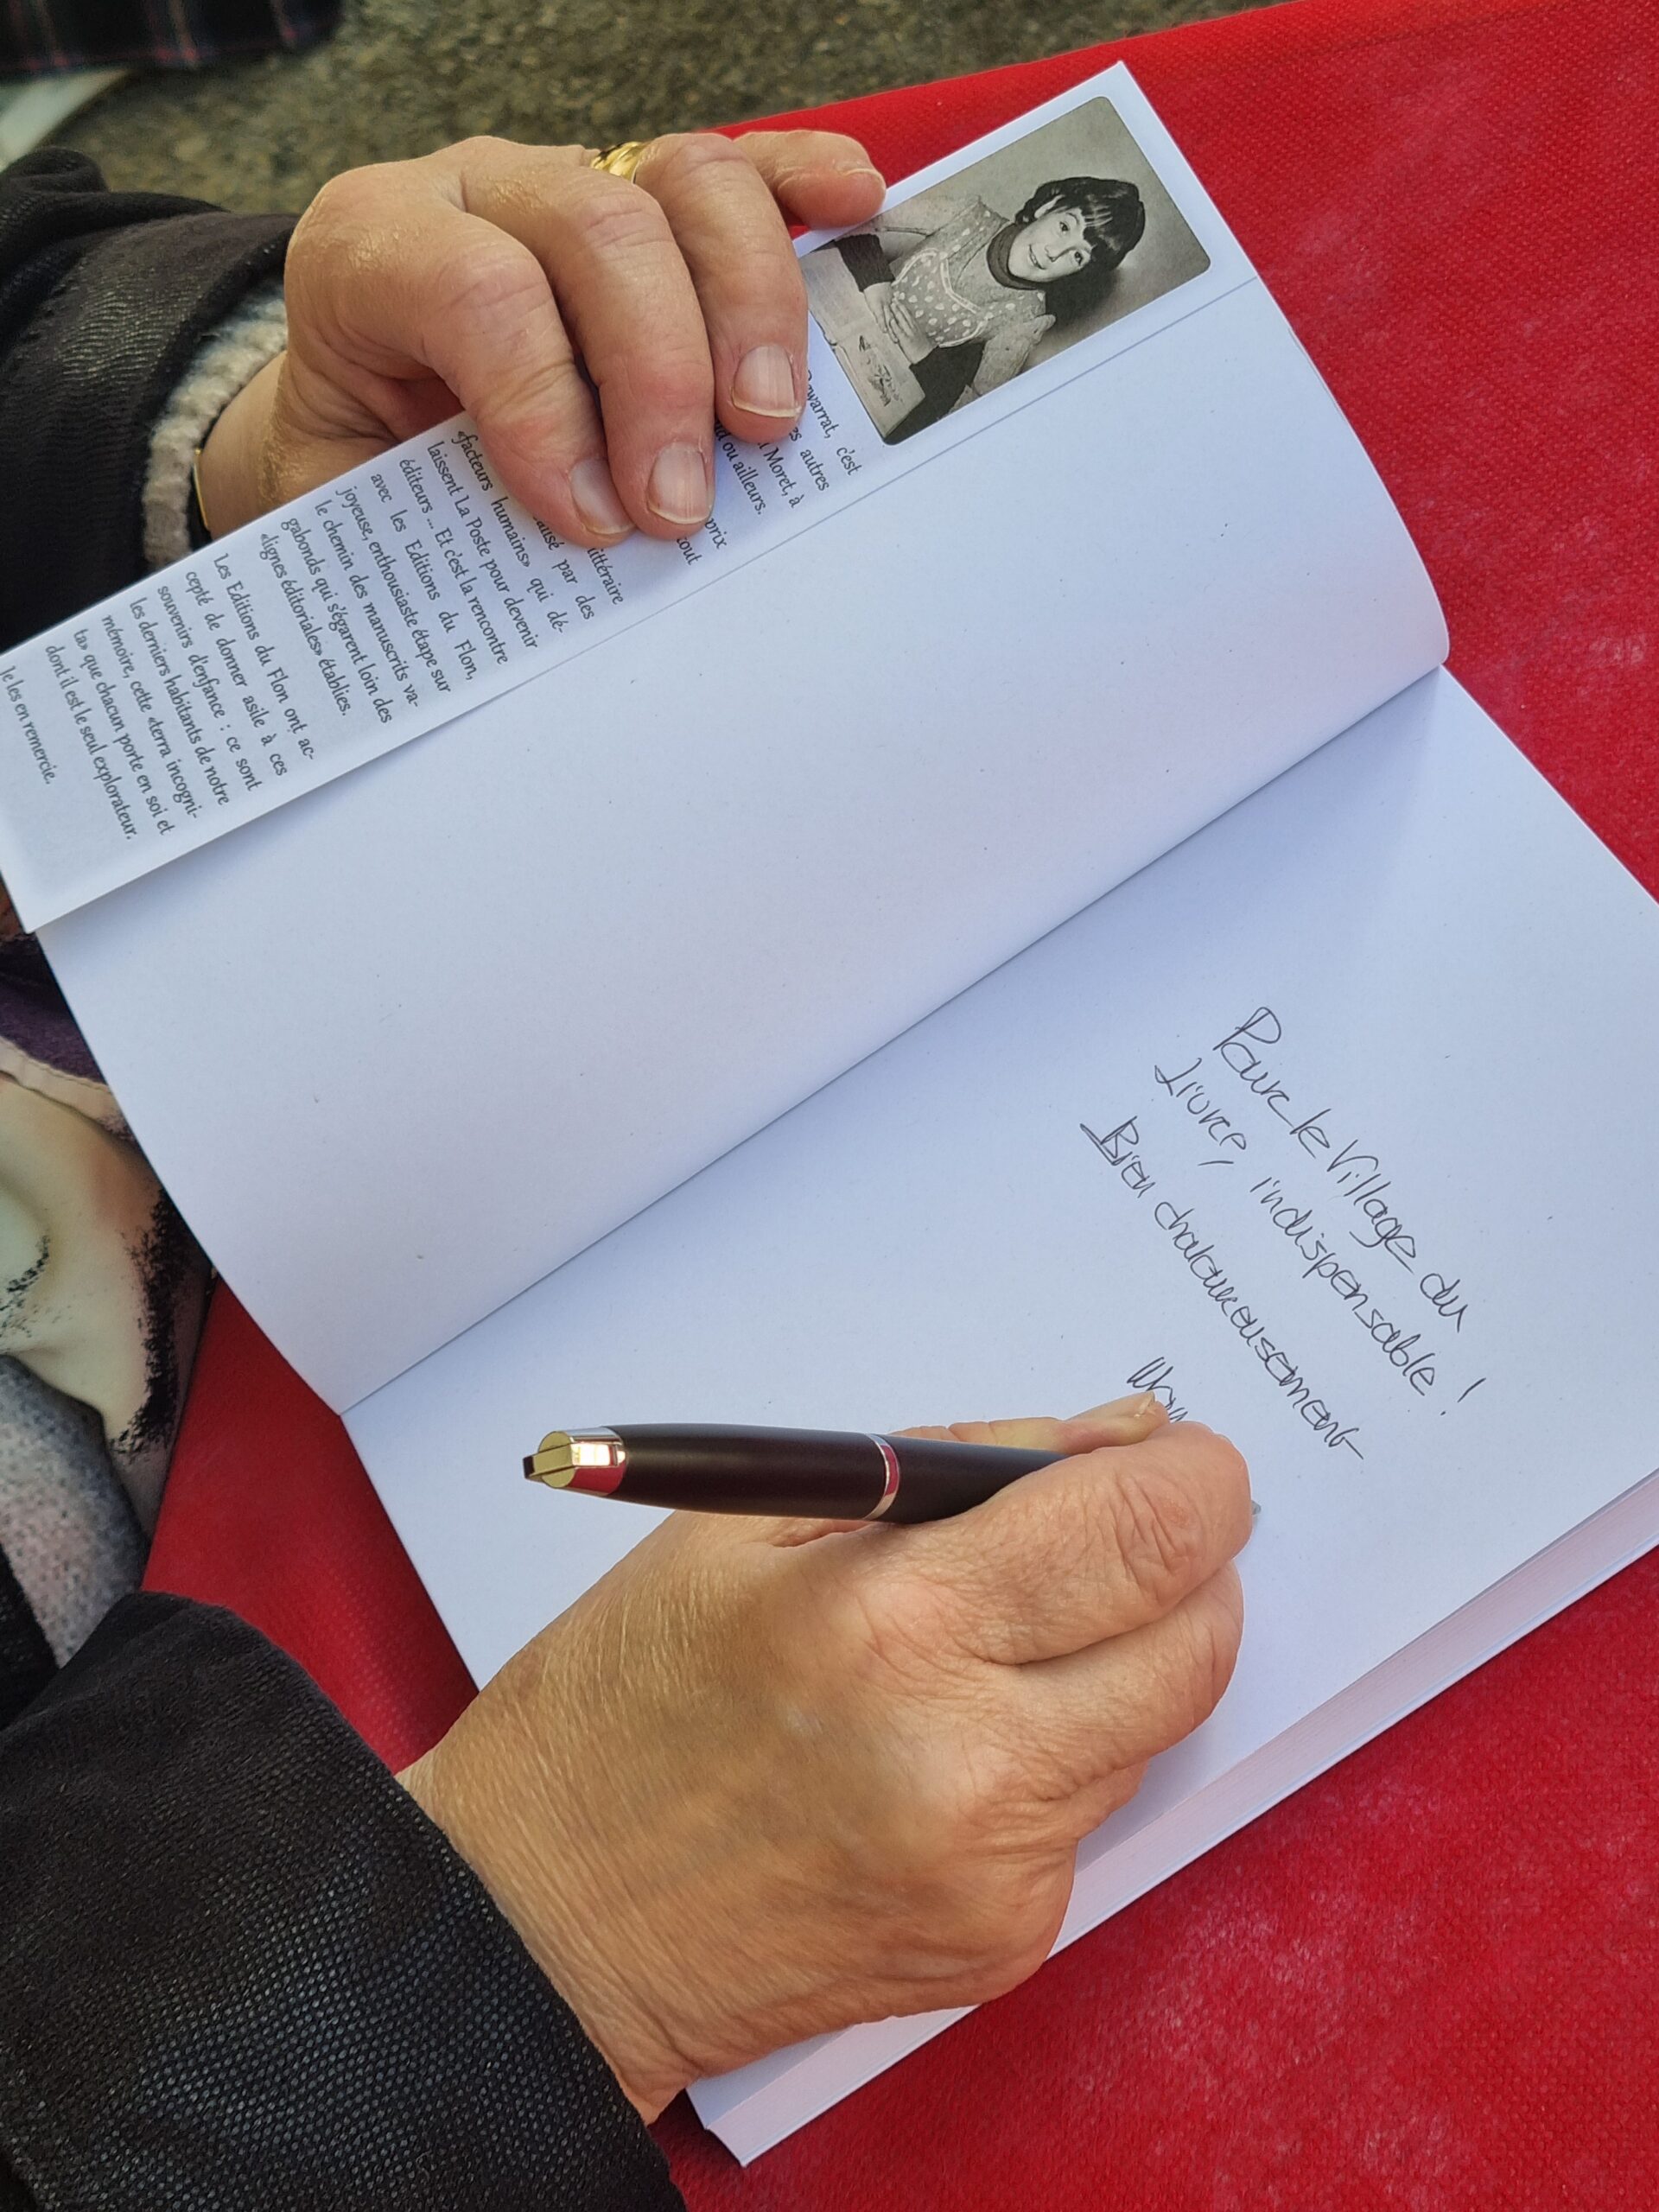 warrat, c'est
es autres
Moret, à
ou ailleurs.
prix
tout
littéraire
par des
«facteurs humains» qui dé-
laissent La Poste pour devenir
éditeurs ... Et c'est la rencontre
avec les Editions du Flon,
joyeuse, enthousiaste étape sur
le chemin des manuscrits va-
gabonds qui s'égarent loin des
«lignes éditoriales» établies.
Les Editions du Flon ont ac-
cepté de donner asile à ces
souvenirs d'enfance : ce sont
les derniers habitants de notre
mémoire, cette «terra incogni-
ta» que chacun porte en soi et
dont il est le seul explorateur.
Je les en remercie.
Pour le Village du
Livre, indispensable !
Bien chaleureusement